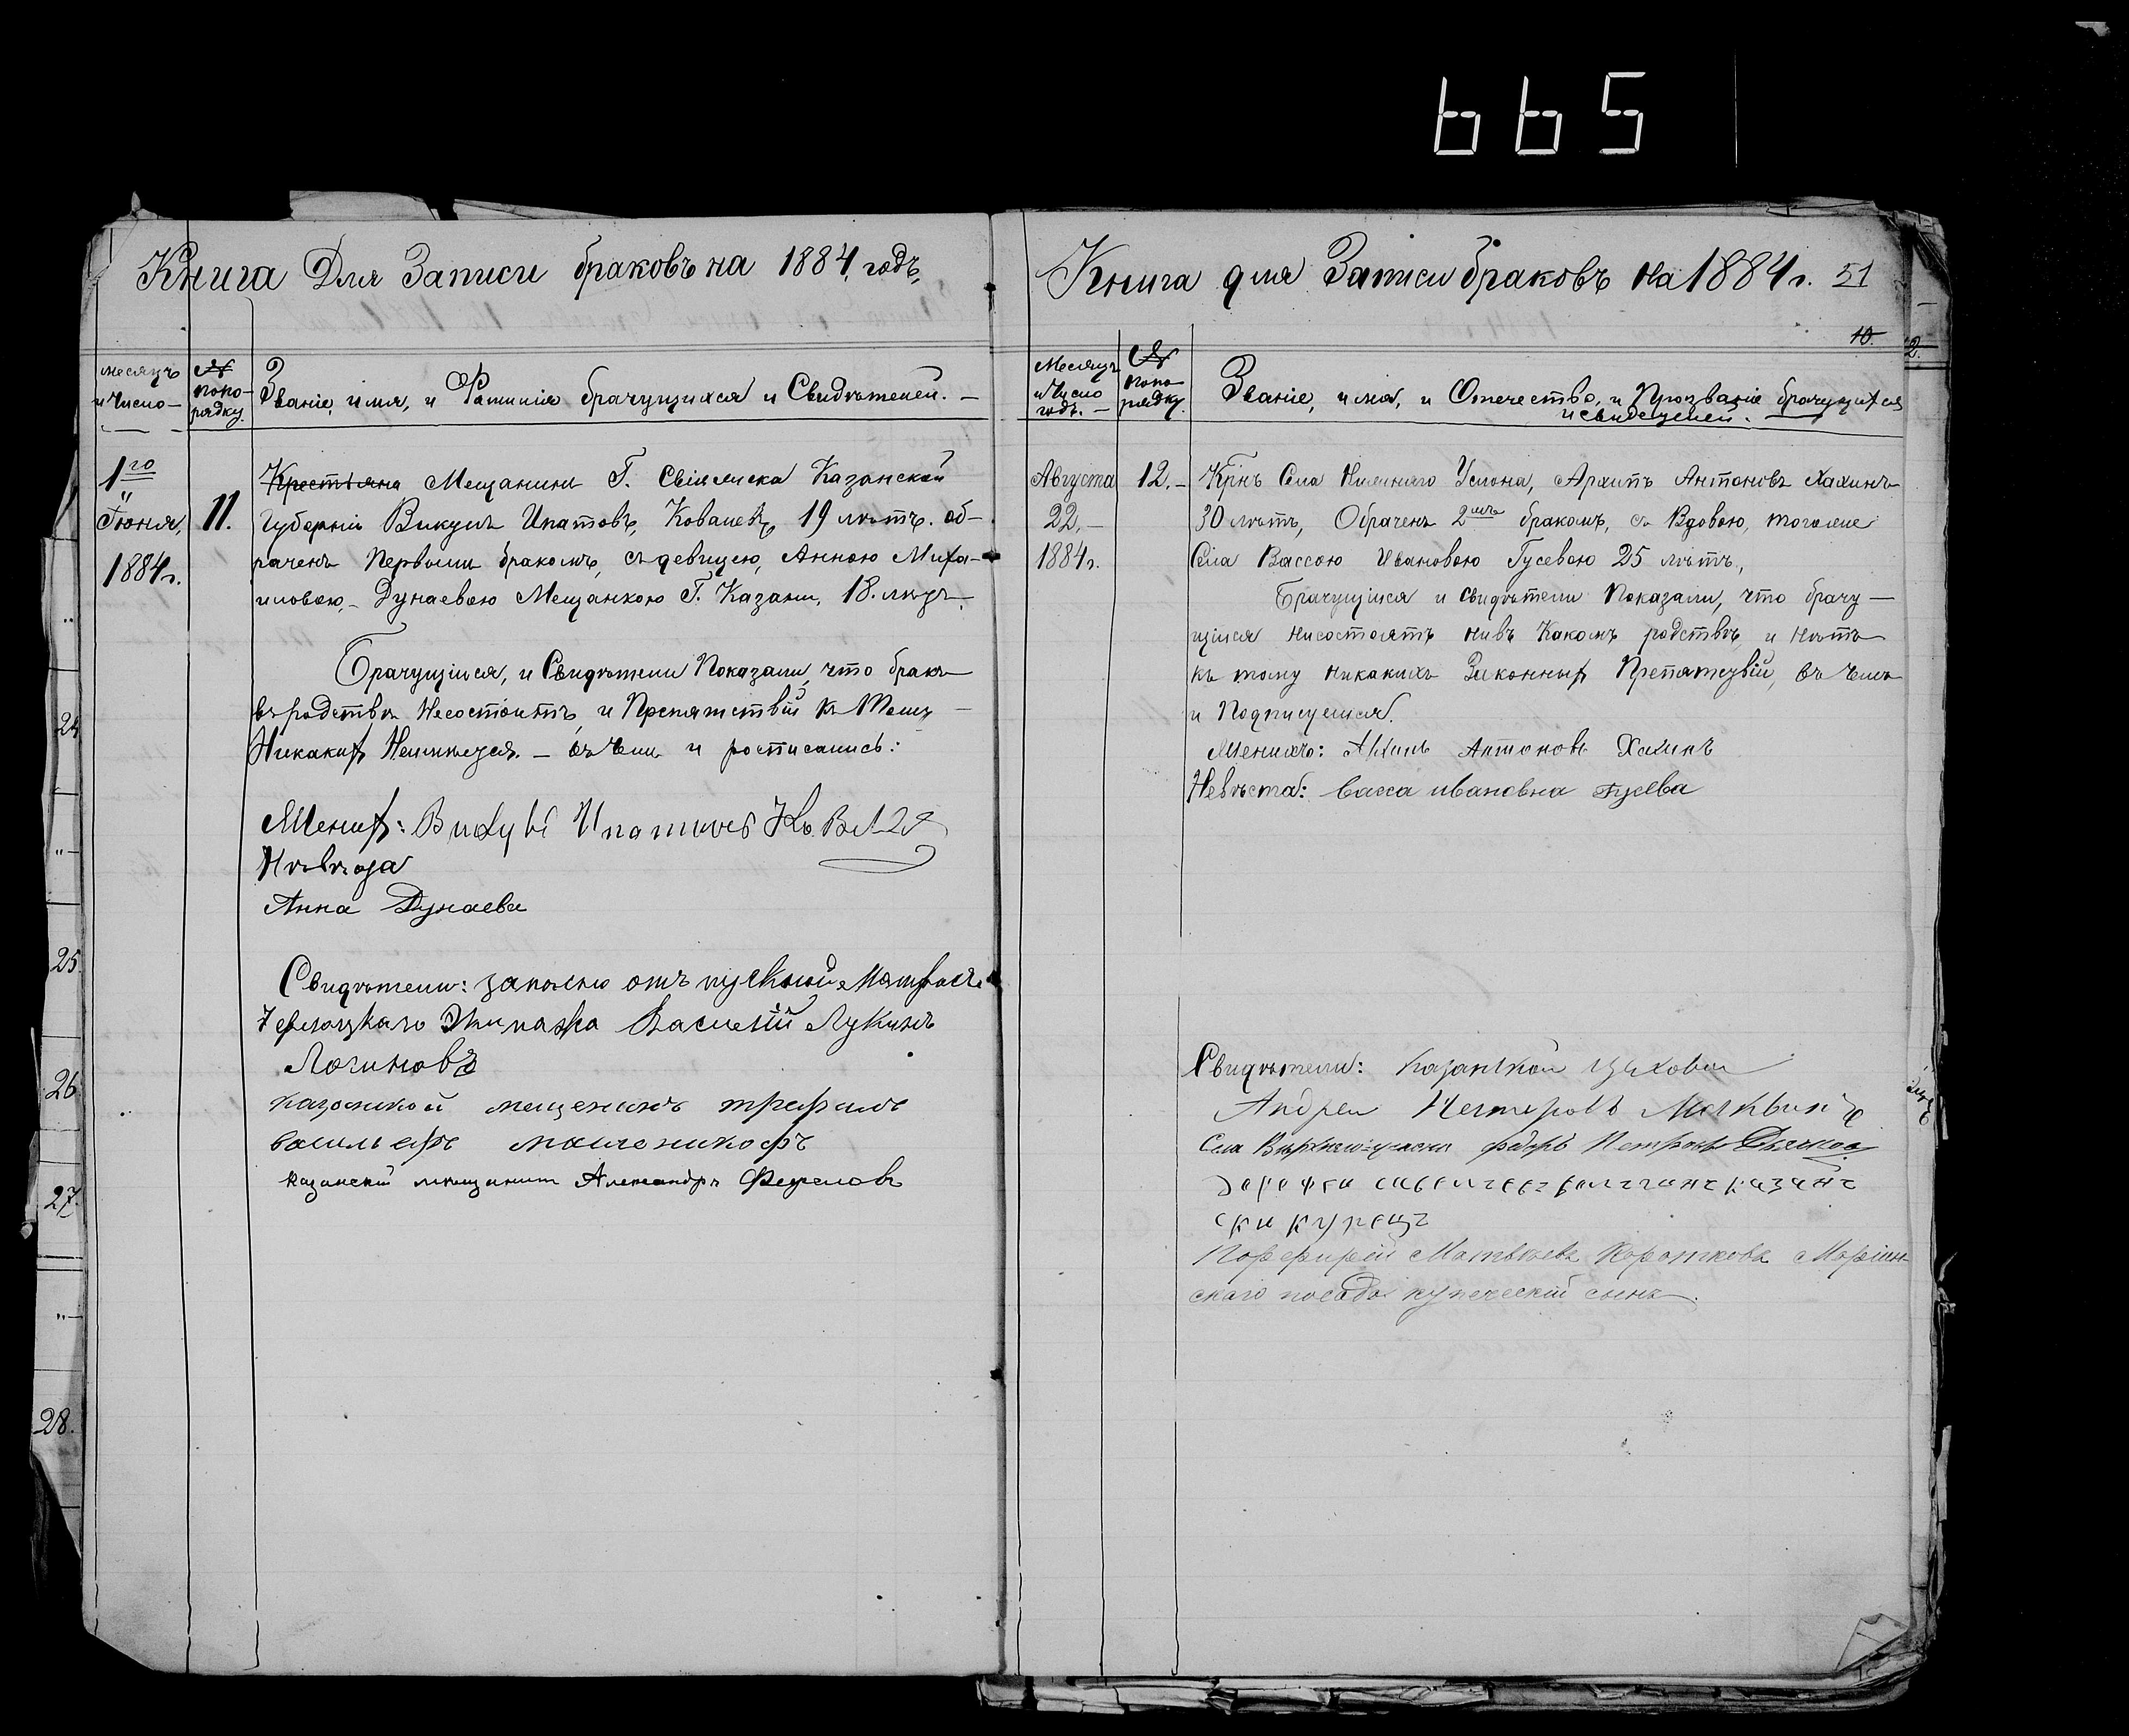 665
Книга Для Записи браковъ на 1884 годъ.
месяцъ
и Число
№
попо-
рядку.
Званіе, имя, и Фамилія брачущихся и Свидѣтелей.
1го
"
Іюня,
1884г.
11.
Крестьяна Мещанинъ Г. Казанской
Губерніи Викулъ Ипатовъ, Ковалевъ, 19 лѣтъ. об-
раченъ Первымъ бракомъ, съ девицею, Анною Миха-
иловою, Дунаевою Мещанкою Г. Казани, 18. лѣтъ.
Брачущіися, и Свидѣтели Показали, что бракъ
въ родствѣ Несостоитъ, и Препятствій къ Тому
Никаких Неимѣется. — въ чемъ и росписались:
Жених: Викулъ Ипатовъ
Невѣста
Анна Дунаева
Свидѣтели: отъ
Василій Лукинъ
Логиновъ
мещенинъ трефилъ
васильефъ
казанскій мещанинъ Александръ
24
25
26
27.
28.
Книга для Записи браковъ на 1884 г. 51
10.
2.
Месяцъ
и Число
годъ.
№
попо-
рядку.
Званіе, имя, и Отечество, и Прозваніе брачущихся
и свидетелей.
Августа
22,
1884г.
12.
Кр҃нъ Села Нижняго Услона, Архипъ Антоновъ Халинъ
30 лѣтъ, Обраченъ 2мъ бракомъ, съ Вдовою, тогоже
Села Вассою Ивановою Гусевою 25 лѣтъ,
Брачущіися и Свидѣтели Показали, что брачу-
щіися нисостоятъ нивъ Какомъ родствѣ, и нѣтъ
къ тому никакихъ Законных Препятствій, въ чемъ
и Подписуемся.
Женихъ: Антоновъ Халинъ
Невѣста: васса ивановна гусева
Свидѣтели: цеховои
Андреи
Села федоръ Петровъ
дорофеи
ски купецъ
Порфирій Матвѣевъ Коротковъ Маріин-
скаго посада купеческій сынъ.